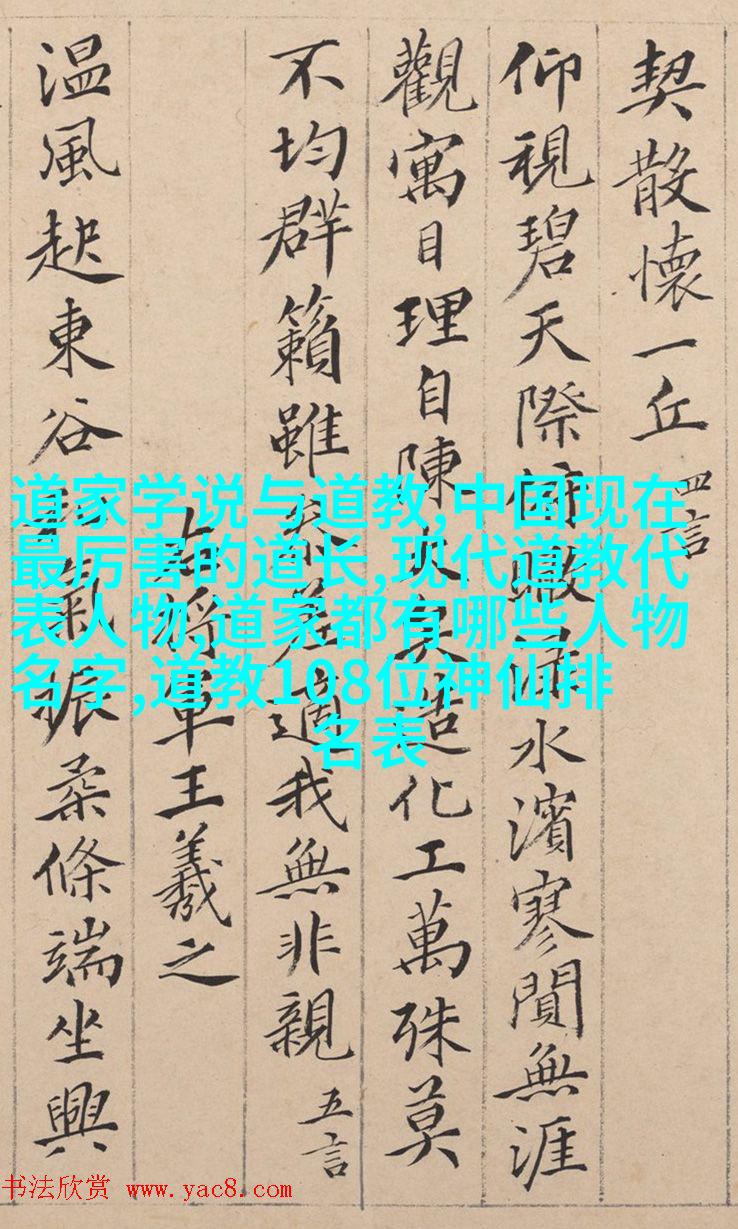 契散懷一丘 四言
仰視碧天際俯瞰淥水濱寥閴無涯
觀寓目理自陳大矣造化工萬殊莫
不均群籟雖參差適我無非親 五言
右將軍王羲之
温風起東谷氣振柔條端坐興
道家学说与道教,中国现在
最厉害的道长,现代道教代
表人物,道家都有哪些人物
名字,道教108位神仙排
名表
书法欣赏 www.yac8.com